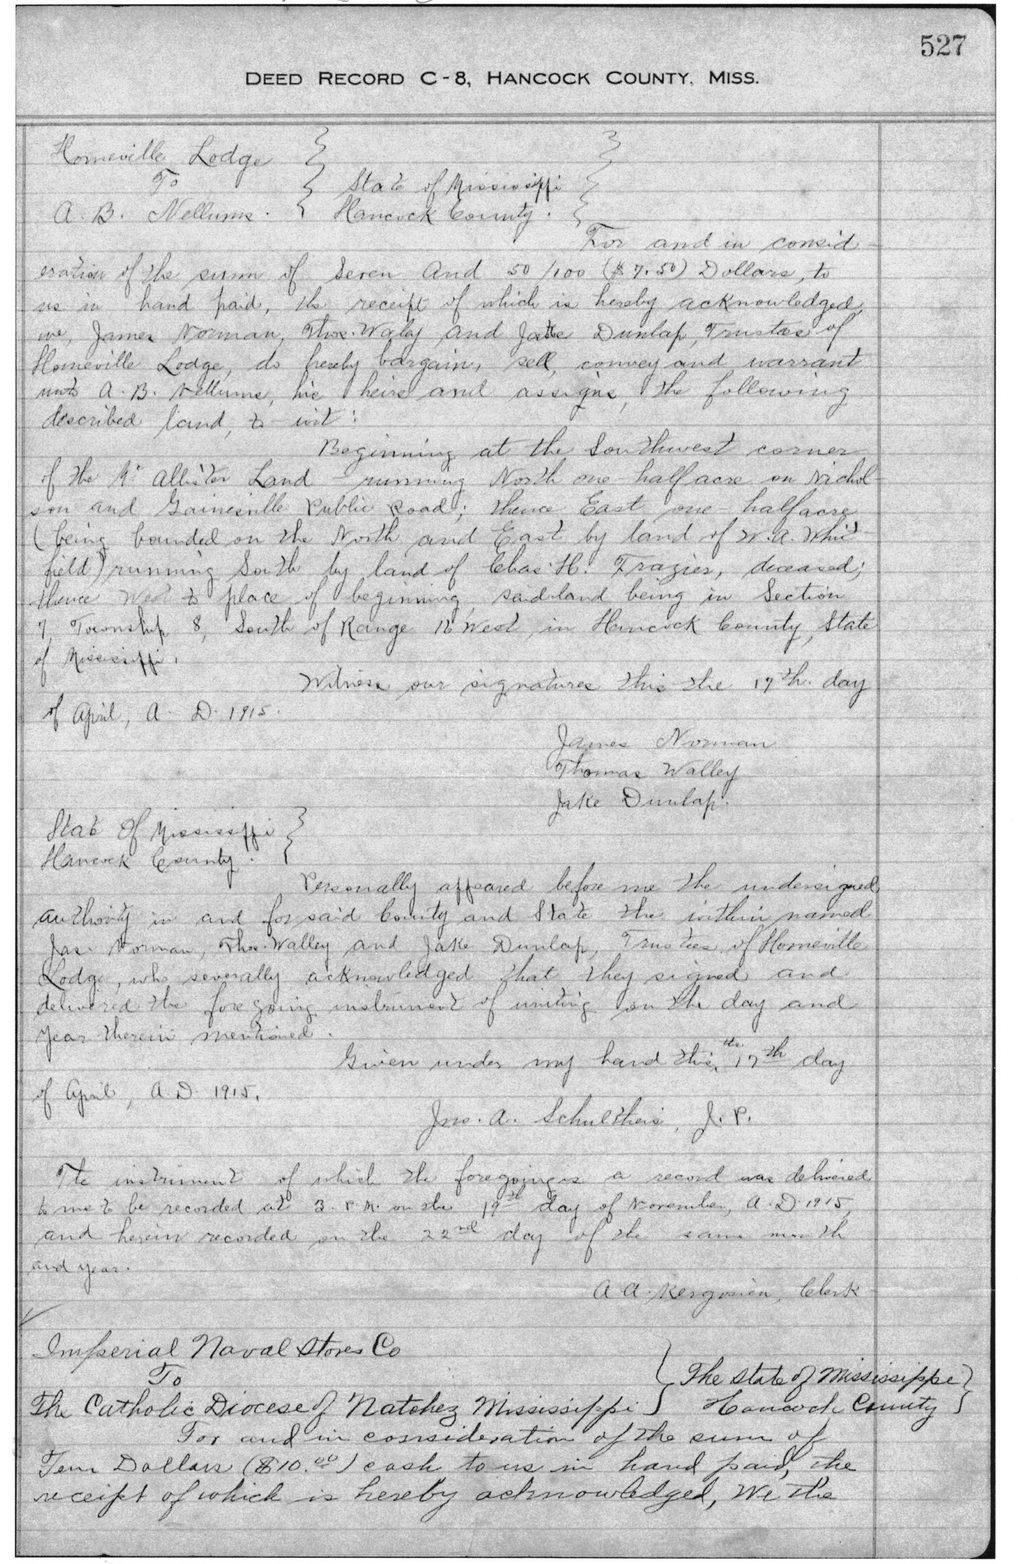 527
DEED RECORD C-8, HANCOCK COUNTY, MISS.
Homeville Lodge
To
A. B. Nellums.
State of Mississippi
Hancock County.
For and in consid-
eration of the sum of Seven and 50/100 ($7.50) Dollars, to
us in hand paid, the receipt of which is hereby acknowledged,
we, James Norman, Thos. Waley and Jake Dunlap, Trustees of
Homeville Lodge, do hereby bargain, sell, convey and warrant
unto A. B. Nellums, his heirs and assigns, the following
described land, to-wit:
Beginning at the Southwest corner
of the Mc Allister Land - running North one-half acre on Nichol
son and Gainesville Public Road; thence East one-half acre
(being bounded on the North and East by land of W. A. Whit-
field) running South by land of Chas. H. Frazier, deceased;
thence West to place of beginning, said land being in Section
7, Township 8, South of Range 16 West in Hancock County, State
of Mississippi.
Witness our signatures this the 17th. day
of April, A. D. 1915.
James Norman
Thomas Walley
Jake Dunlap.
State Of Mississippi
Hancock County.
Personally appeared before me the undersigned
authority in and for said County and State the within named
Jas. Norman, Thos. Walley and Jake Dunlap, Trustees of Homeville
Lodge, who severally acknowledged that they signed and
delivered the foregoing instrument of writing on the day and
year therein mentioned.
Given under my hand this, the 17th day
of April, A D. 1915.
Jno. A. Schultheis, J. P.
The instrument of which the foregoing is a record was delivered
to me to be recorded at 3. P. M. on the 19th day of November, A. D. 1915,
and herein recorded on the 22nd day of the same month
and year.
A A. Kergosien, Clerk
Imperial Naval Stores Co
To
The Catholic Diocese of Natchez Mississippi
The State of Mississippi
Hancock County
For and in consideration of the sum of
Ten Dollars ($10.00) cash to us in hand paid, the
receipt of which is hereby acknowledged, We the